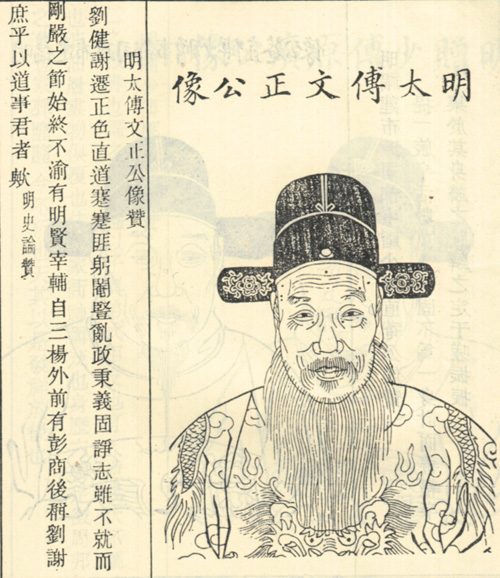 明太傅文正公像
明太傅文正公像贊
劉健謝遷正色直道蹇蹇匪躬閹豎亂政秉義固諍志雖不就而
剛嚴之節始終不渝有明賢宰輔自三楊外前有彭商後稱劉謝
庶乎以道事君者歟 明史論贊